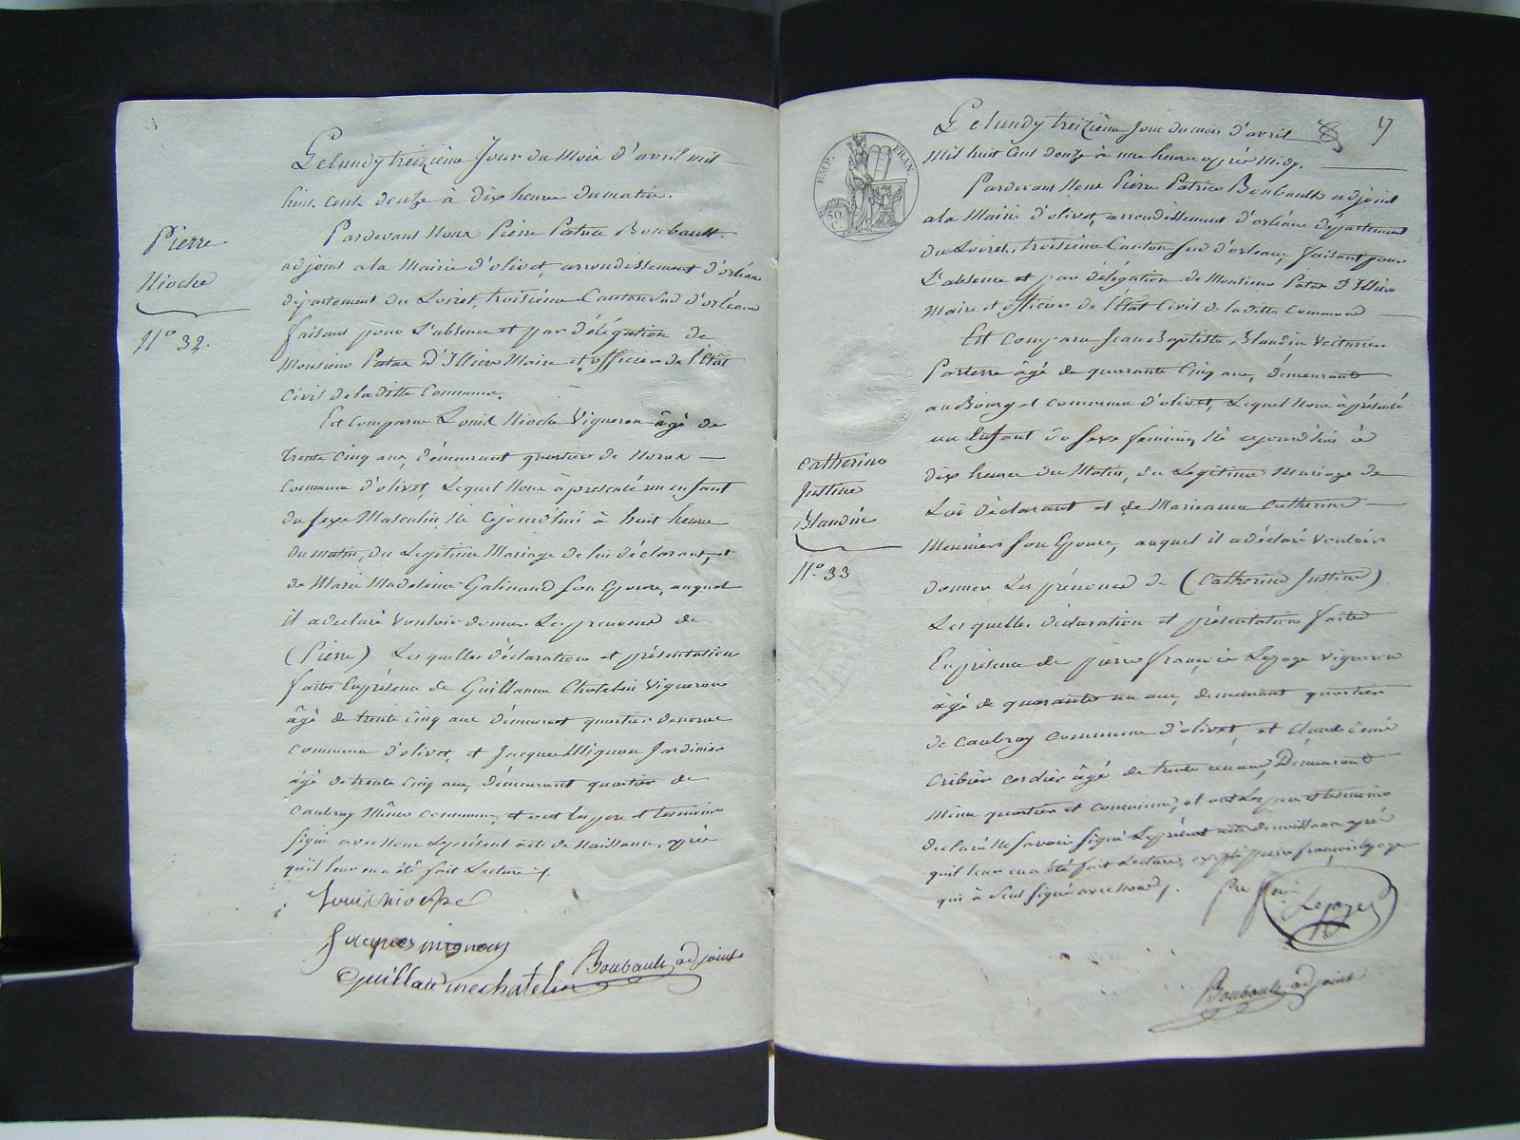 Pierre
Nioche
N° 32.
Ce lundy treizième Jour du Mois d'avril mil
huit Cent douze à dix heure du matin.
Pardevant Nous Pierre Patrice Boubault
adjoint a la Mairie d'olivet, arrondissement d'orléans
département du Loiret, troisième Canton Sud d'orléans
faisant pour L'absence et par délégation de
Monsieur Patas D'Illiers Maire et officier de l'Etat
Civil de la ditte Commune.
Est Comparu Louis Nioche Vigneron âgé de
trente cinq ans, demeurant quartier de
Commune d'olivet, Lequel Nous à présenté un enfant
du sexe Masculin Né Cejourd'hui à huit heure
du matin, du Légitime Mariage de lui déclarant, et
de Marie Madeleine Galinand son Epouse, auquel
il a declaré vouloir donner Le prenoms de
(Pierre) Les quelles déclaration et présentation
faites En présence de Guillaume Chatelin Vigneron
âgé de trente Cinq ans demeurant quartier
Commune d'olivet, et Jacques Mignon Jardinier
âgé de trente Cinq ans, demeurant quartier de
Caubray Même Commune, et ont les pere et temoins
signé avec Nous Le présent acte de Naissance, après
qu'il leur en a été fait Lecture.
Louis nioche
Jacques mignon
Guillaumechatelin
Boubault adjoint
9
Ce lundy treizième Jour du mois d'avril
Mil huit Cent douze à une heure après Midy.
EMP. FRAN
50 C
Pardevant Nous Pierre Patrice Boubault adjoint
a la Mairie d'olivet, arrondissement d'orléans département
du Loiret, troisième Canton Sud d'orleans, faisant pour
L'absence et par délégation de Monsieur Patas D'Illiers
Maire et officier de l'Etat Civil de la ditte Commune
Est Comparu Jean Baptiste Blandin Voiturier
Par terre âgé de quarante Cinq ans, demeurant
au Bourg et Commune d'olivet, Lequel Nous à présenté
un Enfant du sexe feminin, Né cejourd'hui à
catherine
Justine
Blandin
N° 33
dix heure du Matin, du Légitime Mariage de
Lui déclarant et de Marianne Catherine
Meunier son Epouse, auquel il a déclaré Vouloir
donner Les prénoms de (Catherine Justine)
Les quelles déclaration et présentation faites
En présence de pierre françois Lepage vigneron
âgé de quarante un ans, demeurant quartier
de Caubray Commune d'olivet, et
Cribier cordier âgé de trente un ans, Demeurant
Même quartier et Commune, et ont Les pere et temoins
declaré Ne savoir signé Le présent acte de naissance après
qu'il leur en a été fait Lecture, excepté pierre françois Lepage
qui à seul signé avec Nous.
Lepage
Boubault adjoint